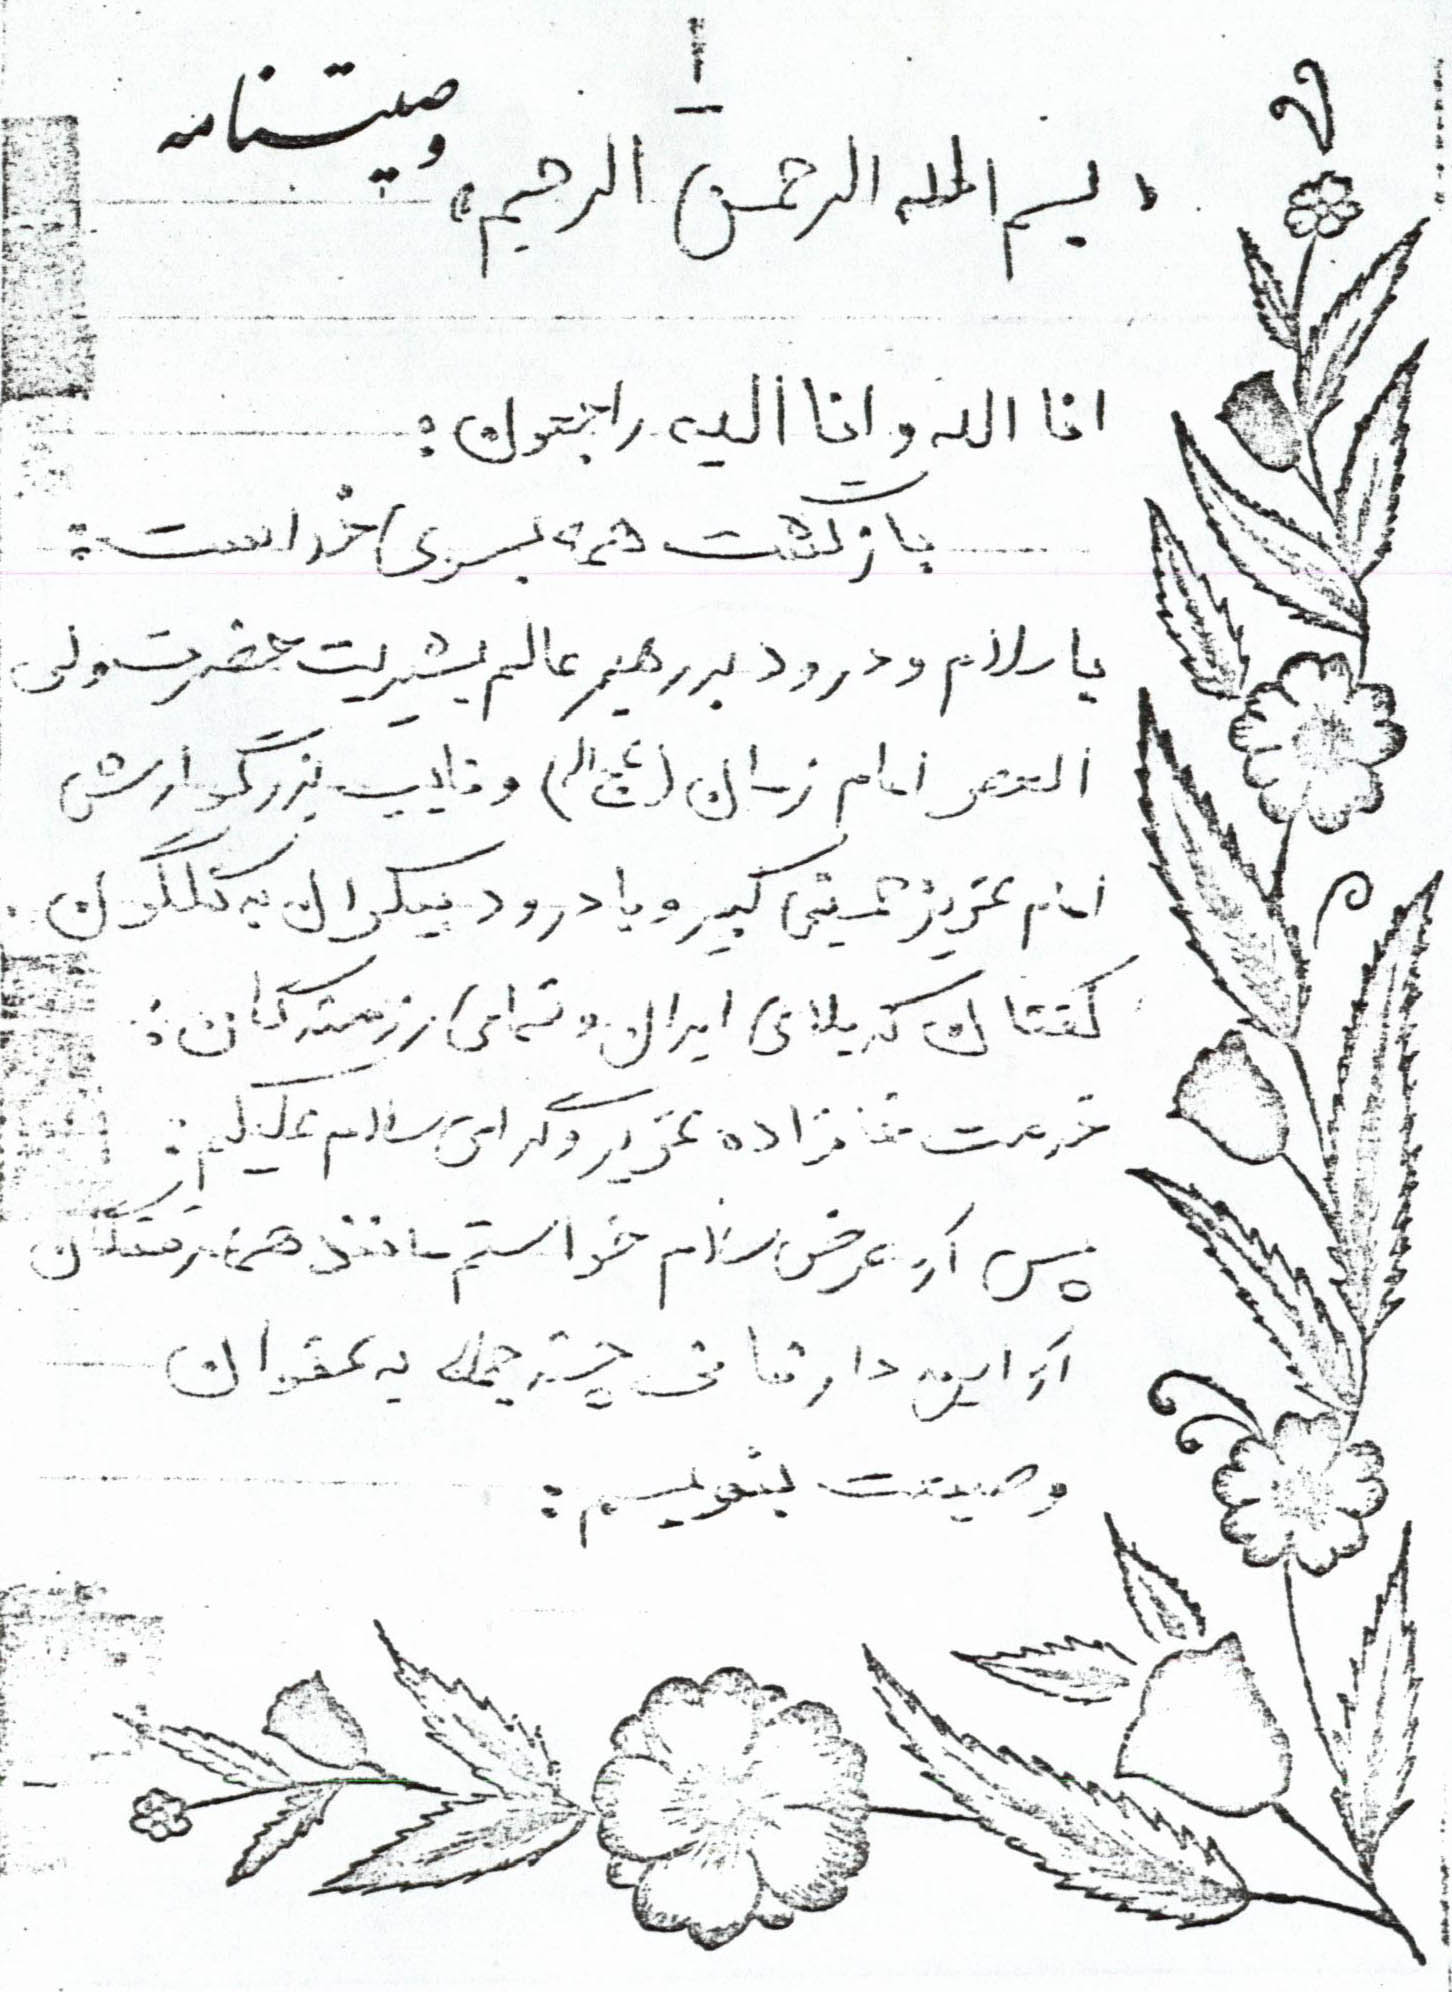 ۱-
وصیتنامه
«بسم الله الرحمن الرحیم»
انا الله و انا الیه راجعون:
بازگشت همه بسوی خداست:
با سلام و درود بر رهبر عالم بشریت حضرت ولی
العصر امام زمان (عج اله) و نایب بزرگوارش
امام عزیز خمینی کبیر و با درود بیکران به گلگون
کفنان کربلای ایران و تمامی رزمندگان:
خدمت خانواده عزیز و گرامی سلام علیکم:
پس از عرض سلام خواستم مانند همه رفتگان
از این دار فانی چند جمله به عنوان
وصیت بنویسم: